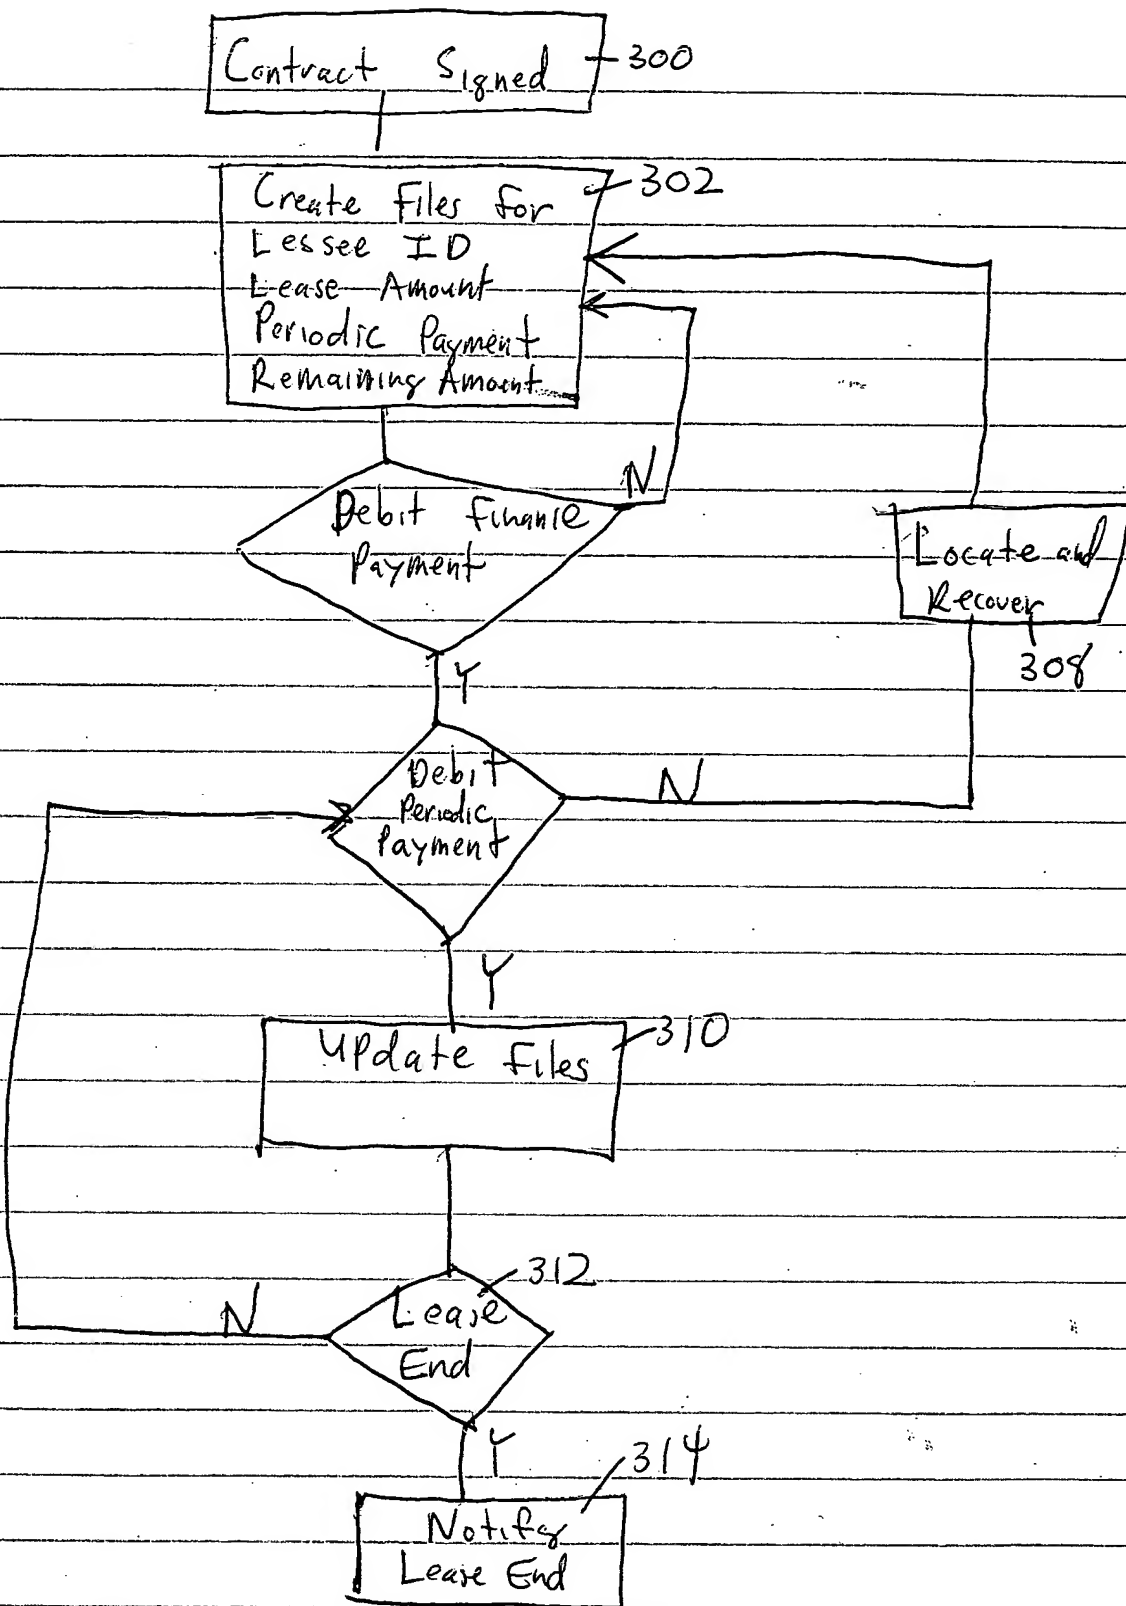 Contract Signed 300
302
Create Files for
Lessee ID
Lease Amount
Periodic Payment
Remaining Amount
N
Debit Finance
Payment
Locate and
Recover
308
Y
Debit
Periodic
Payment
N
Y
310
Update Files
312
Lease
End
N
Y
314
Notify
Lease End